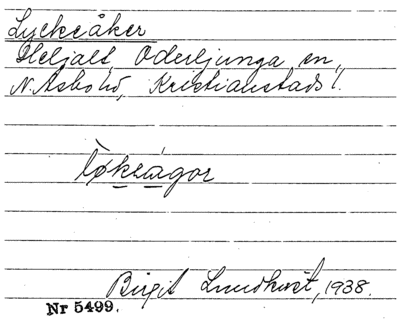 Lyckeåker
Heljalt, Oderljunga sn,
N. Åsbo hd, Kristianstads l.
Birgit Lundkvist, 1938.
Nr 5499.